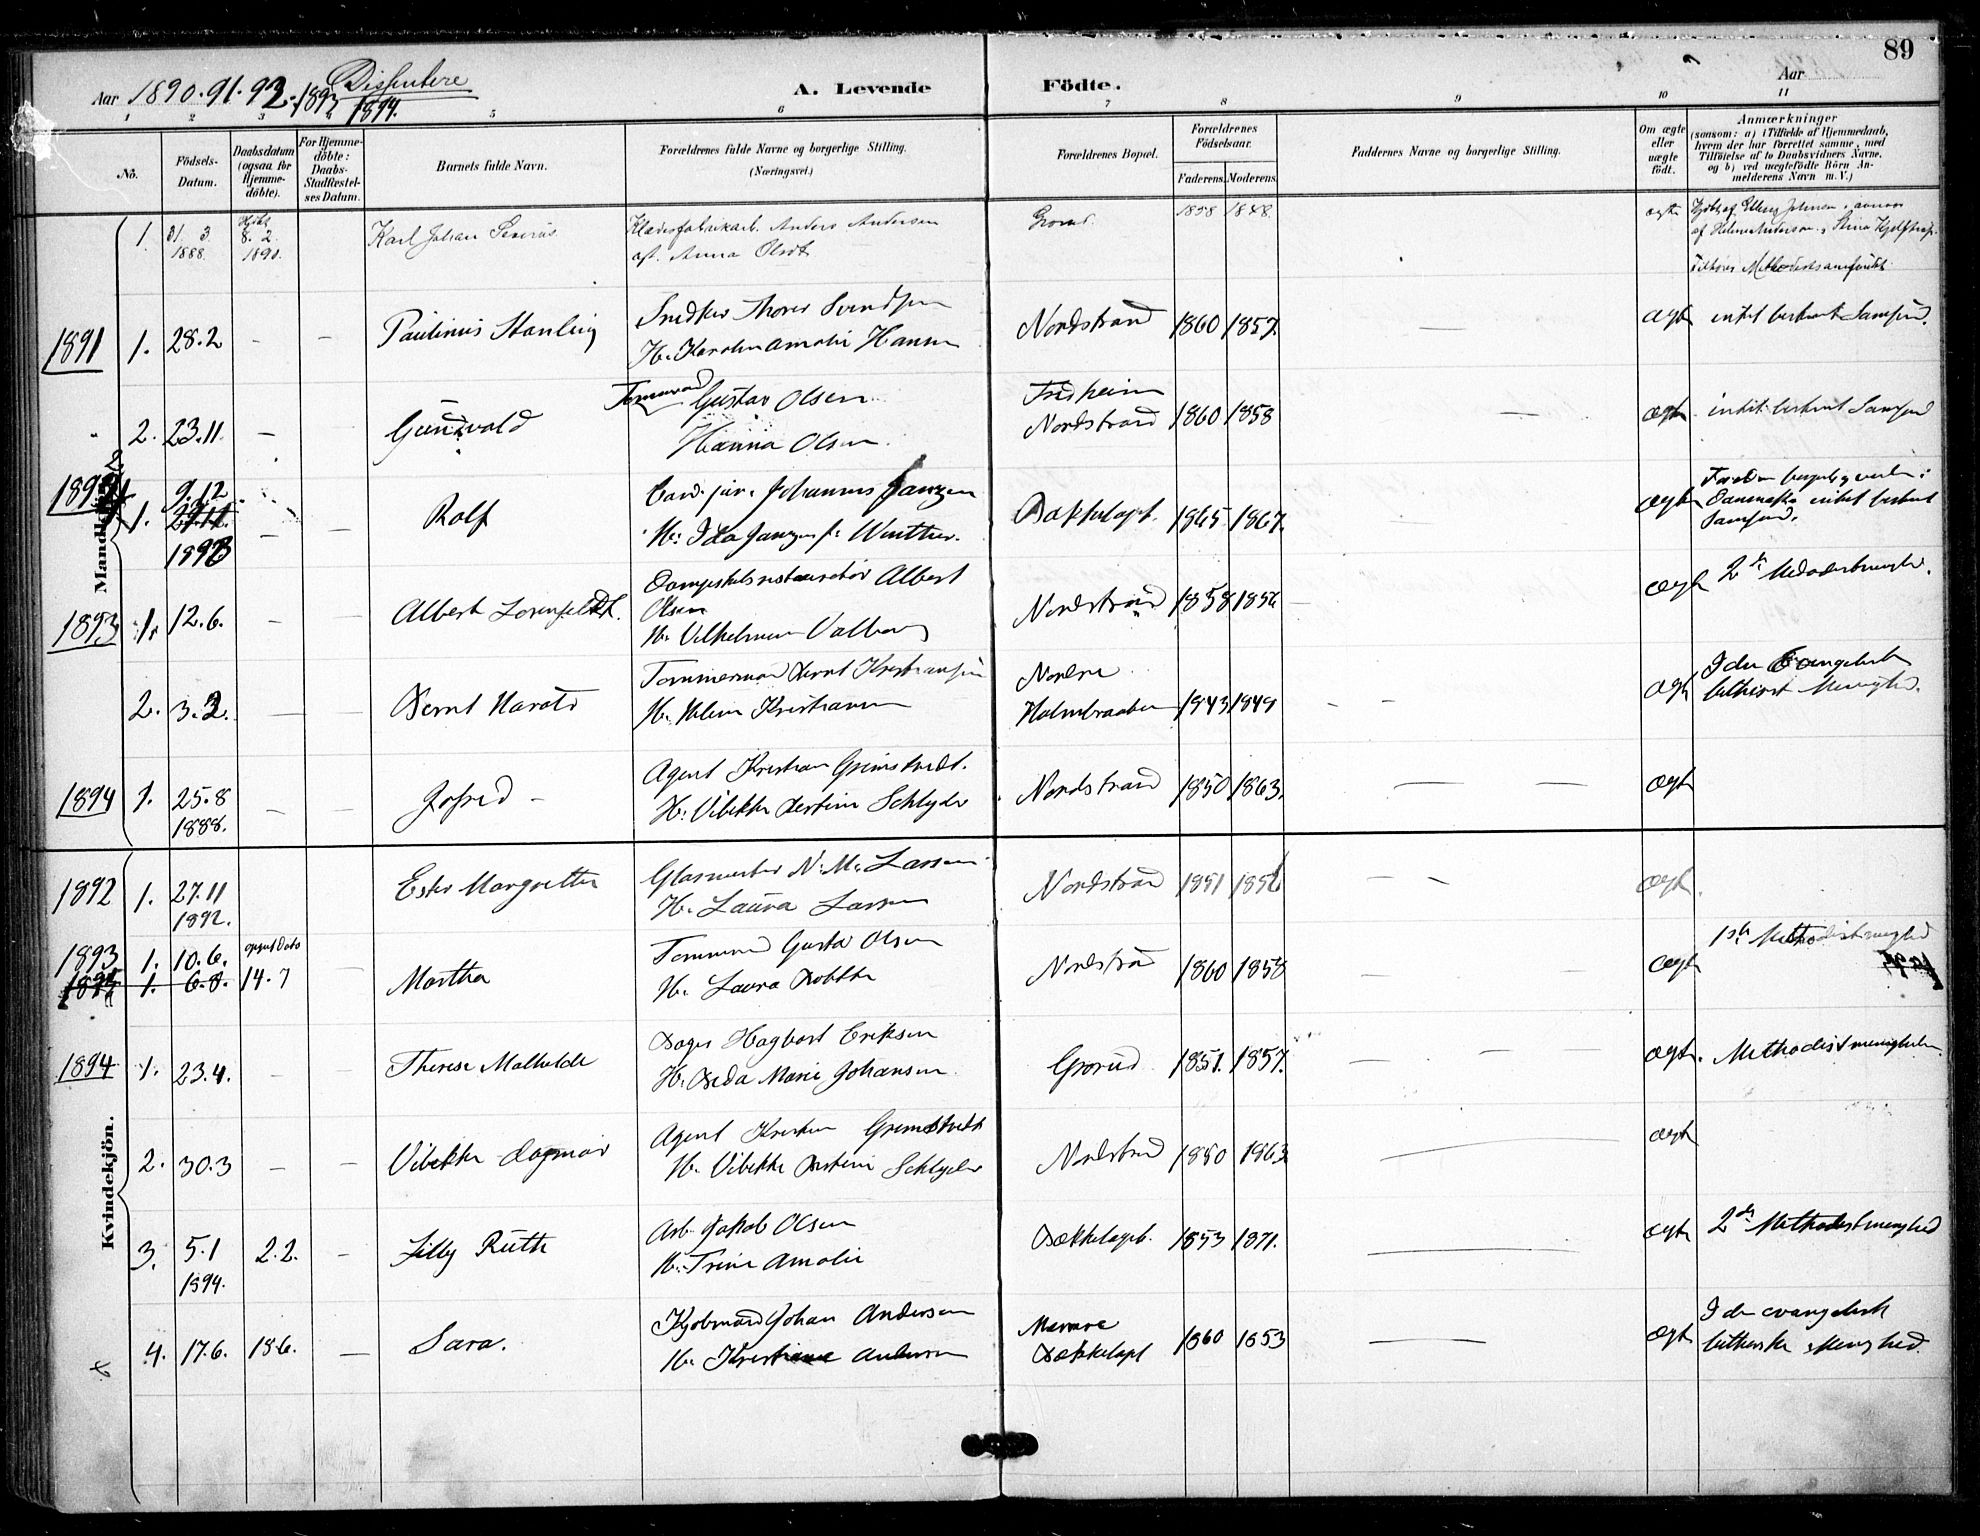 89
Aar 1890. 91. 92. 1893 1894. Disentere
A. Levende Födte.
Aar
1 2 3 4 5 6 7 8 9 10 11
No.
Födsels-Datum.
Daabsdatum (ogsaa for Hjemmedöbte).
For Hjemmedöbte: Daabs-Stadfæstelses Datum.
Barnets fulde Navn.
Forældrenes fulde Navne og borgerlige Stilling. (Næringsvei.)
Forældrenes Bopæl.
Forældrenes Födselsaar.
Faderens. Moderens.
Faddernes Navne og borgerlige Stilling.
Om ægte eller uægte födt.
Anmærkninger (saasom: a) i Tilfælde af Hjemmedaab, hvem der har forrettet samme, med Tilföielse af to Daabsvidners Navne, og b) ved uægtefödte Börn Anmelderens Navn m. V.)
Mandkjön.
1. 31. 3. 1888. Hjdbt 8. 2. 1890. Karl Johan Severus Klædesfabrikarb. Anders Andersen Grorud. 1858 1848 ægte
og Anna Olsdt
Tilhører Methodistsamfundet
1891 1. 28.2 – – Paulinus Stanley Snedker Thorer Svendsen Nordstrand 1860 1857. – ægte intet bestemt Samfund.
H. Karoline Amalie Hansen
" 2. 23.11. – Gundvald Tømmermd Gustav Olsen Fredheim Nordstrand 1860 1858 – ægte intet bestemt Samfund
Hanna Olsen.
1892 1. 9.12 27.11. 1892 – – Rolf Cand. jur. Johannes Janzen Bækkelaget. 1865 1867. ægte intet bestemt Samfund.
H: Ida Janzen f. Winther.
1893 1. 12.6. – – Albert Dampskibsrestauratør Albert Olsen Nordstrand 1858 1856 – ægte 2den Metodistmenighed.
H. Vilhelmine
2. 3.2. – – Bernt Harald Tømmermand Bernt Kristiansen Nordre Holmbraaten 1843 1849 – – ægte I den Evangelisk luthersk Menighed.
H. Helene Kristiansen
1894 1. 25.8 1888. – – Jofred – Agent Kristian Grimstvedt. Nordstrand 1850 1863. – – ægte
H: Vibekke Kestine Schlyder
Kvindekjön.
1892 1. 27.11 1892. Ester Margrethe Glasmester N. M. Larsen Nordstrand 1851 1856 – – ægte.
H. Laura Larsen
1893 1. 10.6. opsat Dato 14.7 – Martha Tømmermd Gustav Olsen Nordstrand 1860 1858 – – ægte 1ste Methodistmenighed
1894 1. 6.8. H. Laura
1894 1. 23.4. – Therese Mathilde Bager Hagbart Eriksen Grorud 1851. 1857. – – ægte. Methodistmenigheden.
H. Beda Marie Johansen.
2. 30.3 – – Vibekke Dagmar Agent Kristian Grimstvedt Nordstrand 1850 1863 – ægte
H. Vibekke Kestine Schlyder
3. 5.1 1894. 2.2. – Lilly Ruth Arb. Jakob Olsen Bækkelaget. 1853 1871. – ægte 2den Methodistmenighed
H. Trine Amalie
4. 17.6. 18.6. – Sara. Kjøbmand Johan Andersen Bækkelaget 1860 1853 – ægte I den evangelisk lutherske Menighed.
H. Kristiane Andersen